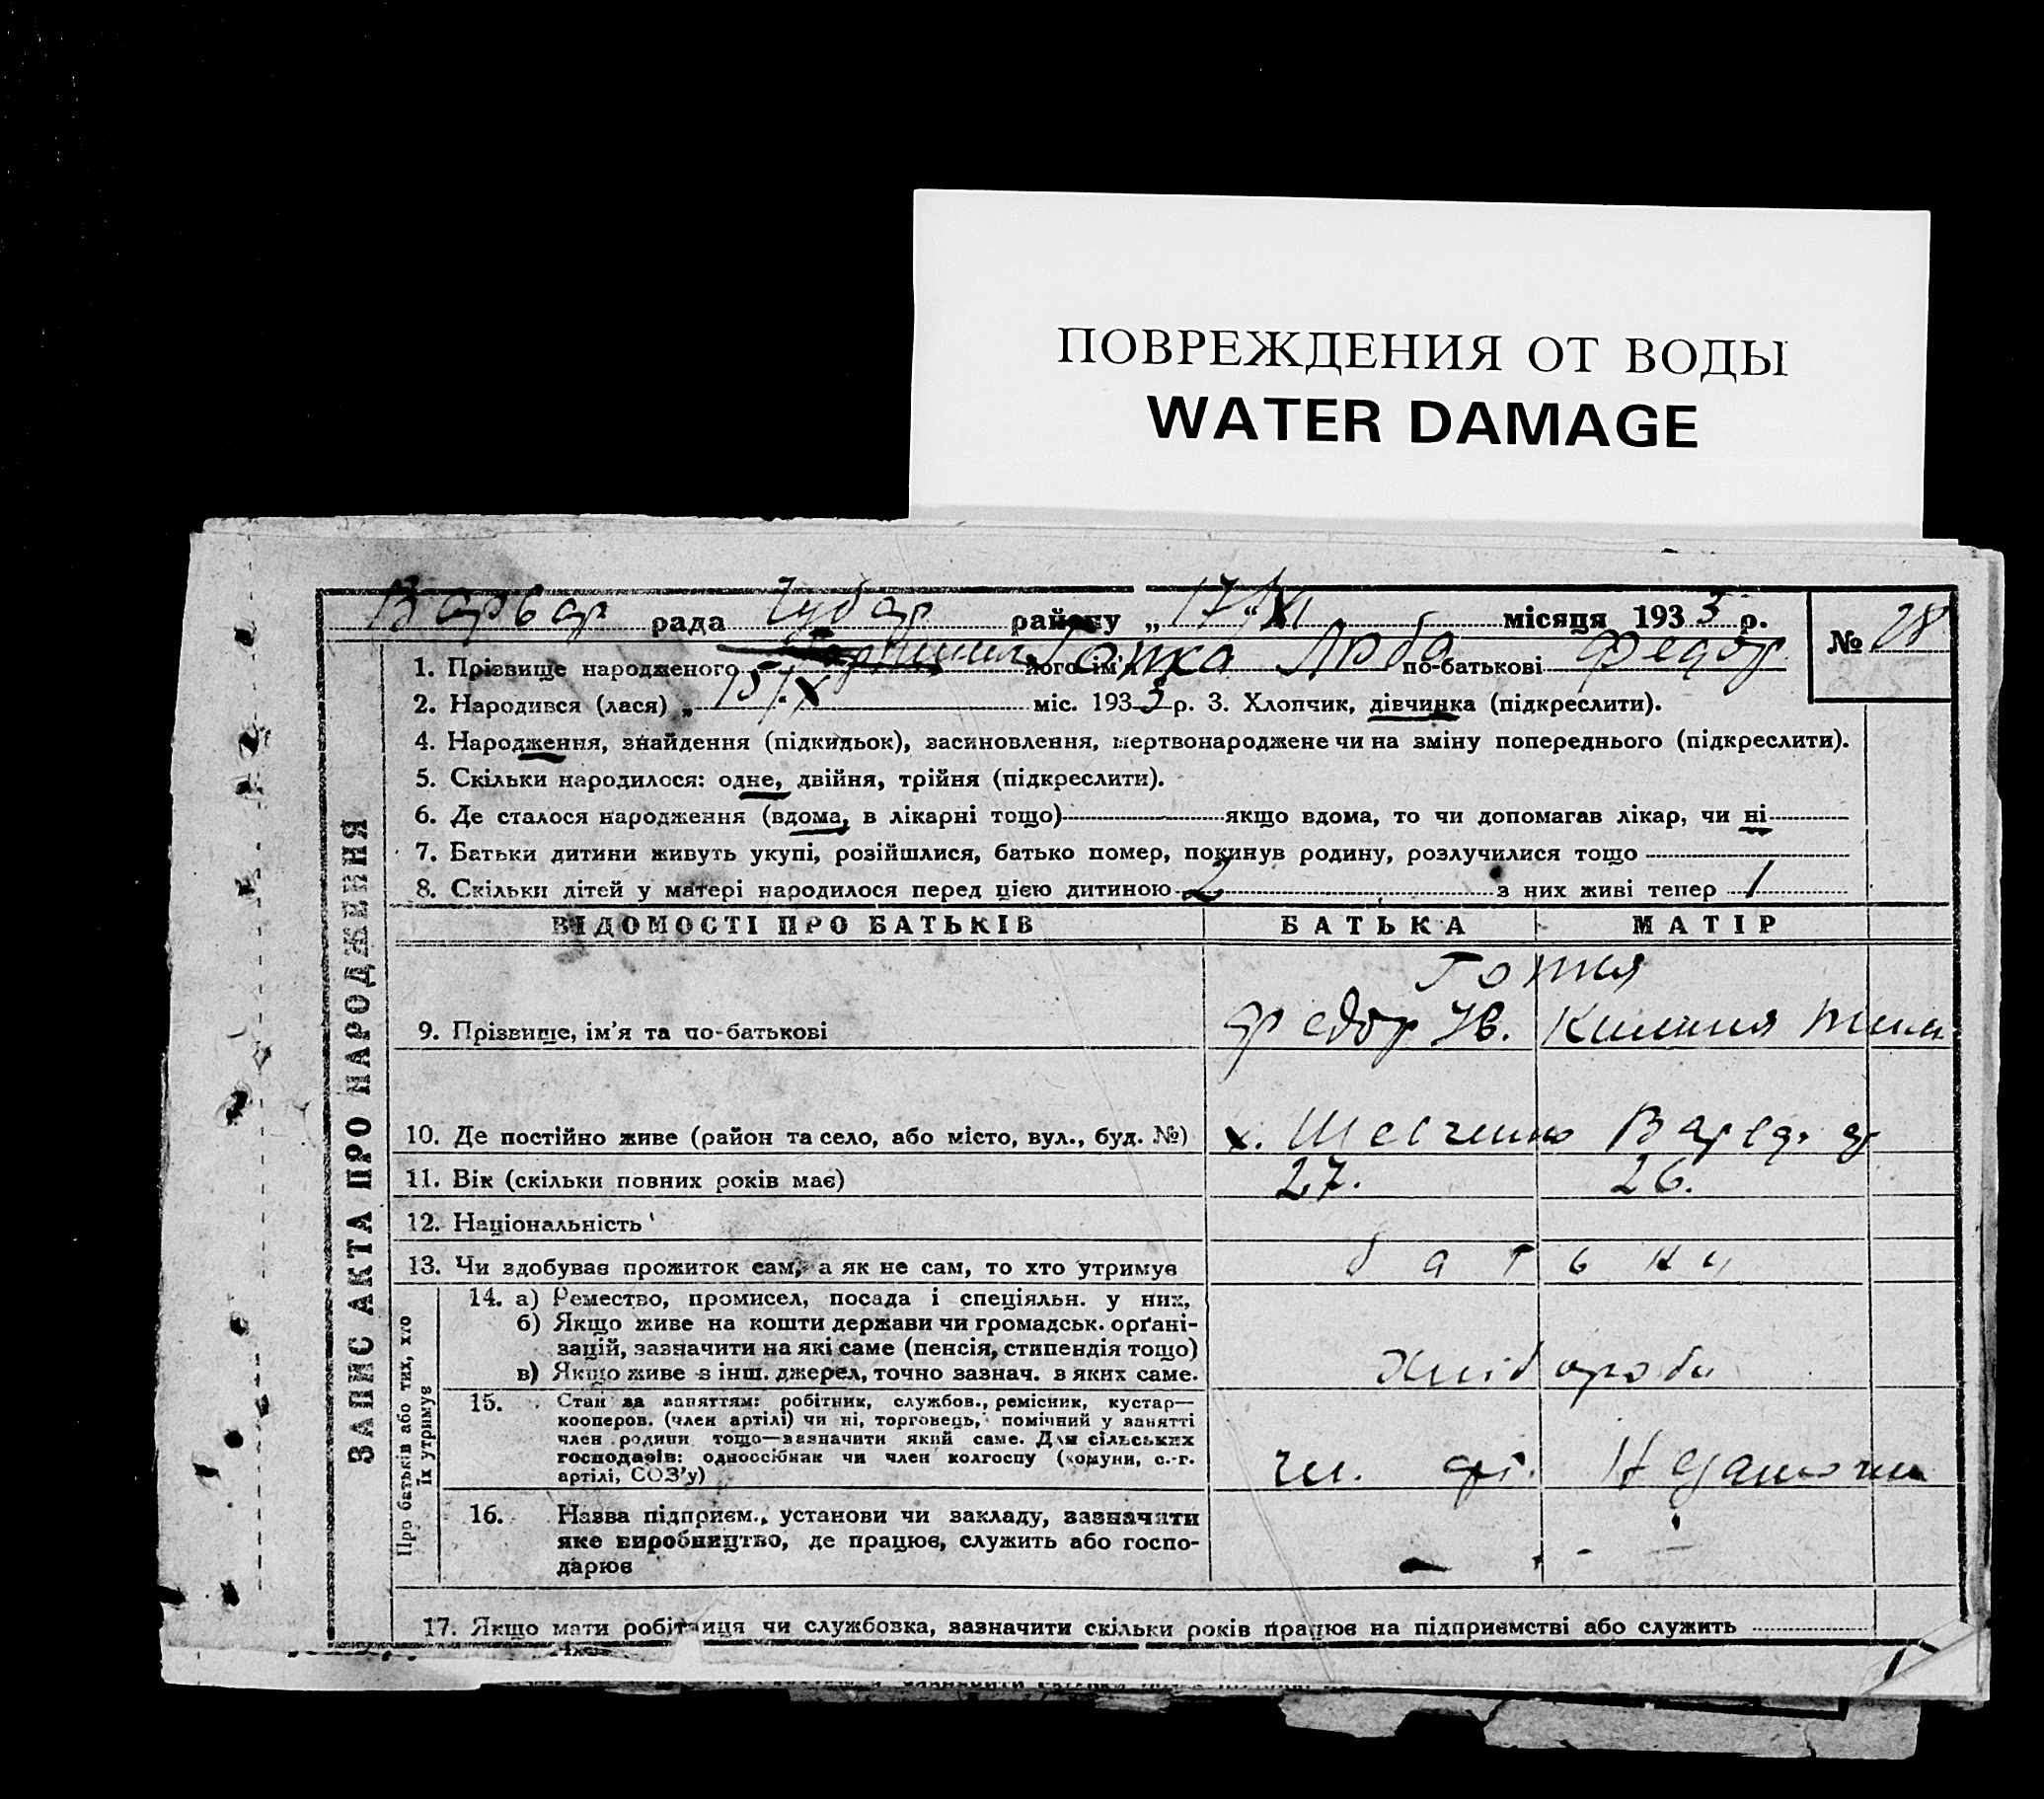 ПОВРЕЖДЕНИЯ ОТ ВОДЫ
WATER DAMAGE
Варвар рада Чубар району „17" XI місяця 1933 р. № 28
1. Прізвище народженого його ім'я Люба по-батькові Федор
2. Народився (лася) „15/X міс. 1933 р. 3. Хлопчик, дівчинка (підкреслити).
4. Народження, знайдення (підкидьок), засиновлення, мертвонароджене чи на зміну попереднього (підкреслити).
5. Скільки народилося: одне, двійня, трійня (підкреслити).
6. Де сталося народження (вдома, в лікарні тощо) якщо вдома, то чи допомагав лікар, чи ні
7. Батьки дитини живуть укупі, розійшлися, батько помер, покинув родину, розлучилися тощо
8. Скільки дітей у матері народилося перед цією дитиною 2 з них живі тепер 1
ВІДОМОСТІ ПРО БАТЬКІВ БАТЬКА МАТІР
9. Прізвище, ім'я та по-батькові Федор Ів. Килиня
10. Де постійно живе (район та село, або місто, вул., буд. №) х. Шевченко
11. Вік (скільки повних років має) 27. 26.
12. Національність
13. Чи здобуває прожиток сам, а як не сам, то хто утримує батьки
14. а) Ремество, промисел, посада і спеціяльн. у них,
б) Якщо живе на кошти держави чи громадськ. орґані-
зацій, зазначити на які саме (пенсія, стипендія тощо)
в) Якщо живе з інш. джерел, точно зазнач. в яких саме.
Хлібороби
15. Стан за заняттям: робітник, службов., ремісник, кустар—
кооперов. (член артілі) чи ні, торговець, помічний у занятті
член родини тощо—зазначити який саме. Для сільських
господарів: одноосібник чи член колгоспу (комуни, с.-г.
артілі, СОЗ'у)
чл.
16. Назва підприєм., установи чи закладу, зазначити
яке виробництво, де працює, служить або госпо-
дарює
17. Якщо мати робітниця чи службовка, зазначити скільки років працює на підприємстві або служить
ЗАПИС АКТА ПРО НАРОДЖЕННЯ
Про батьків або тих, хто
їх утримує